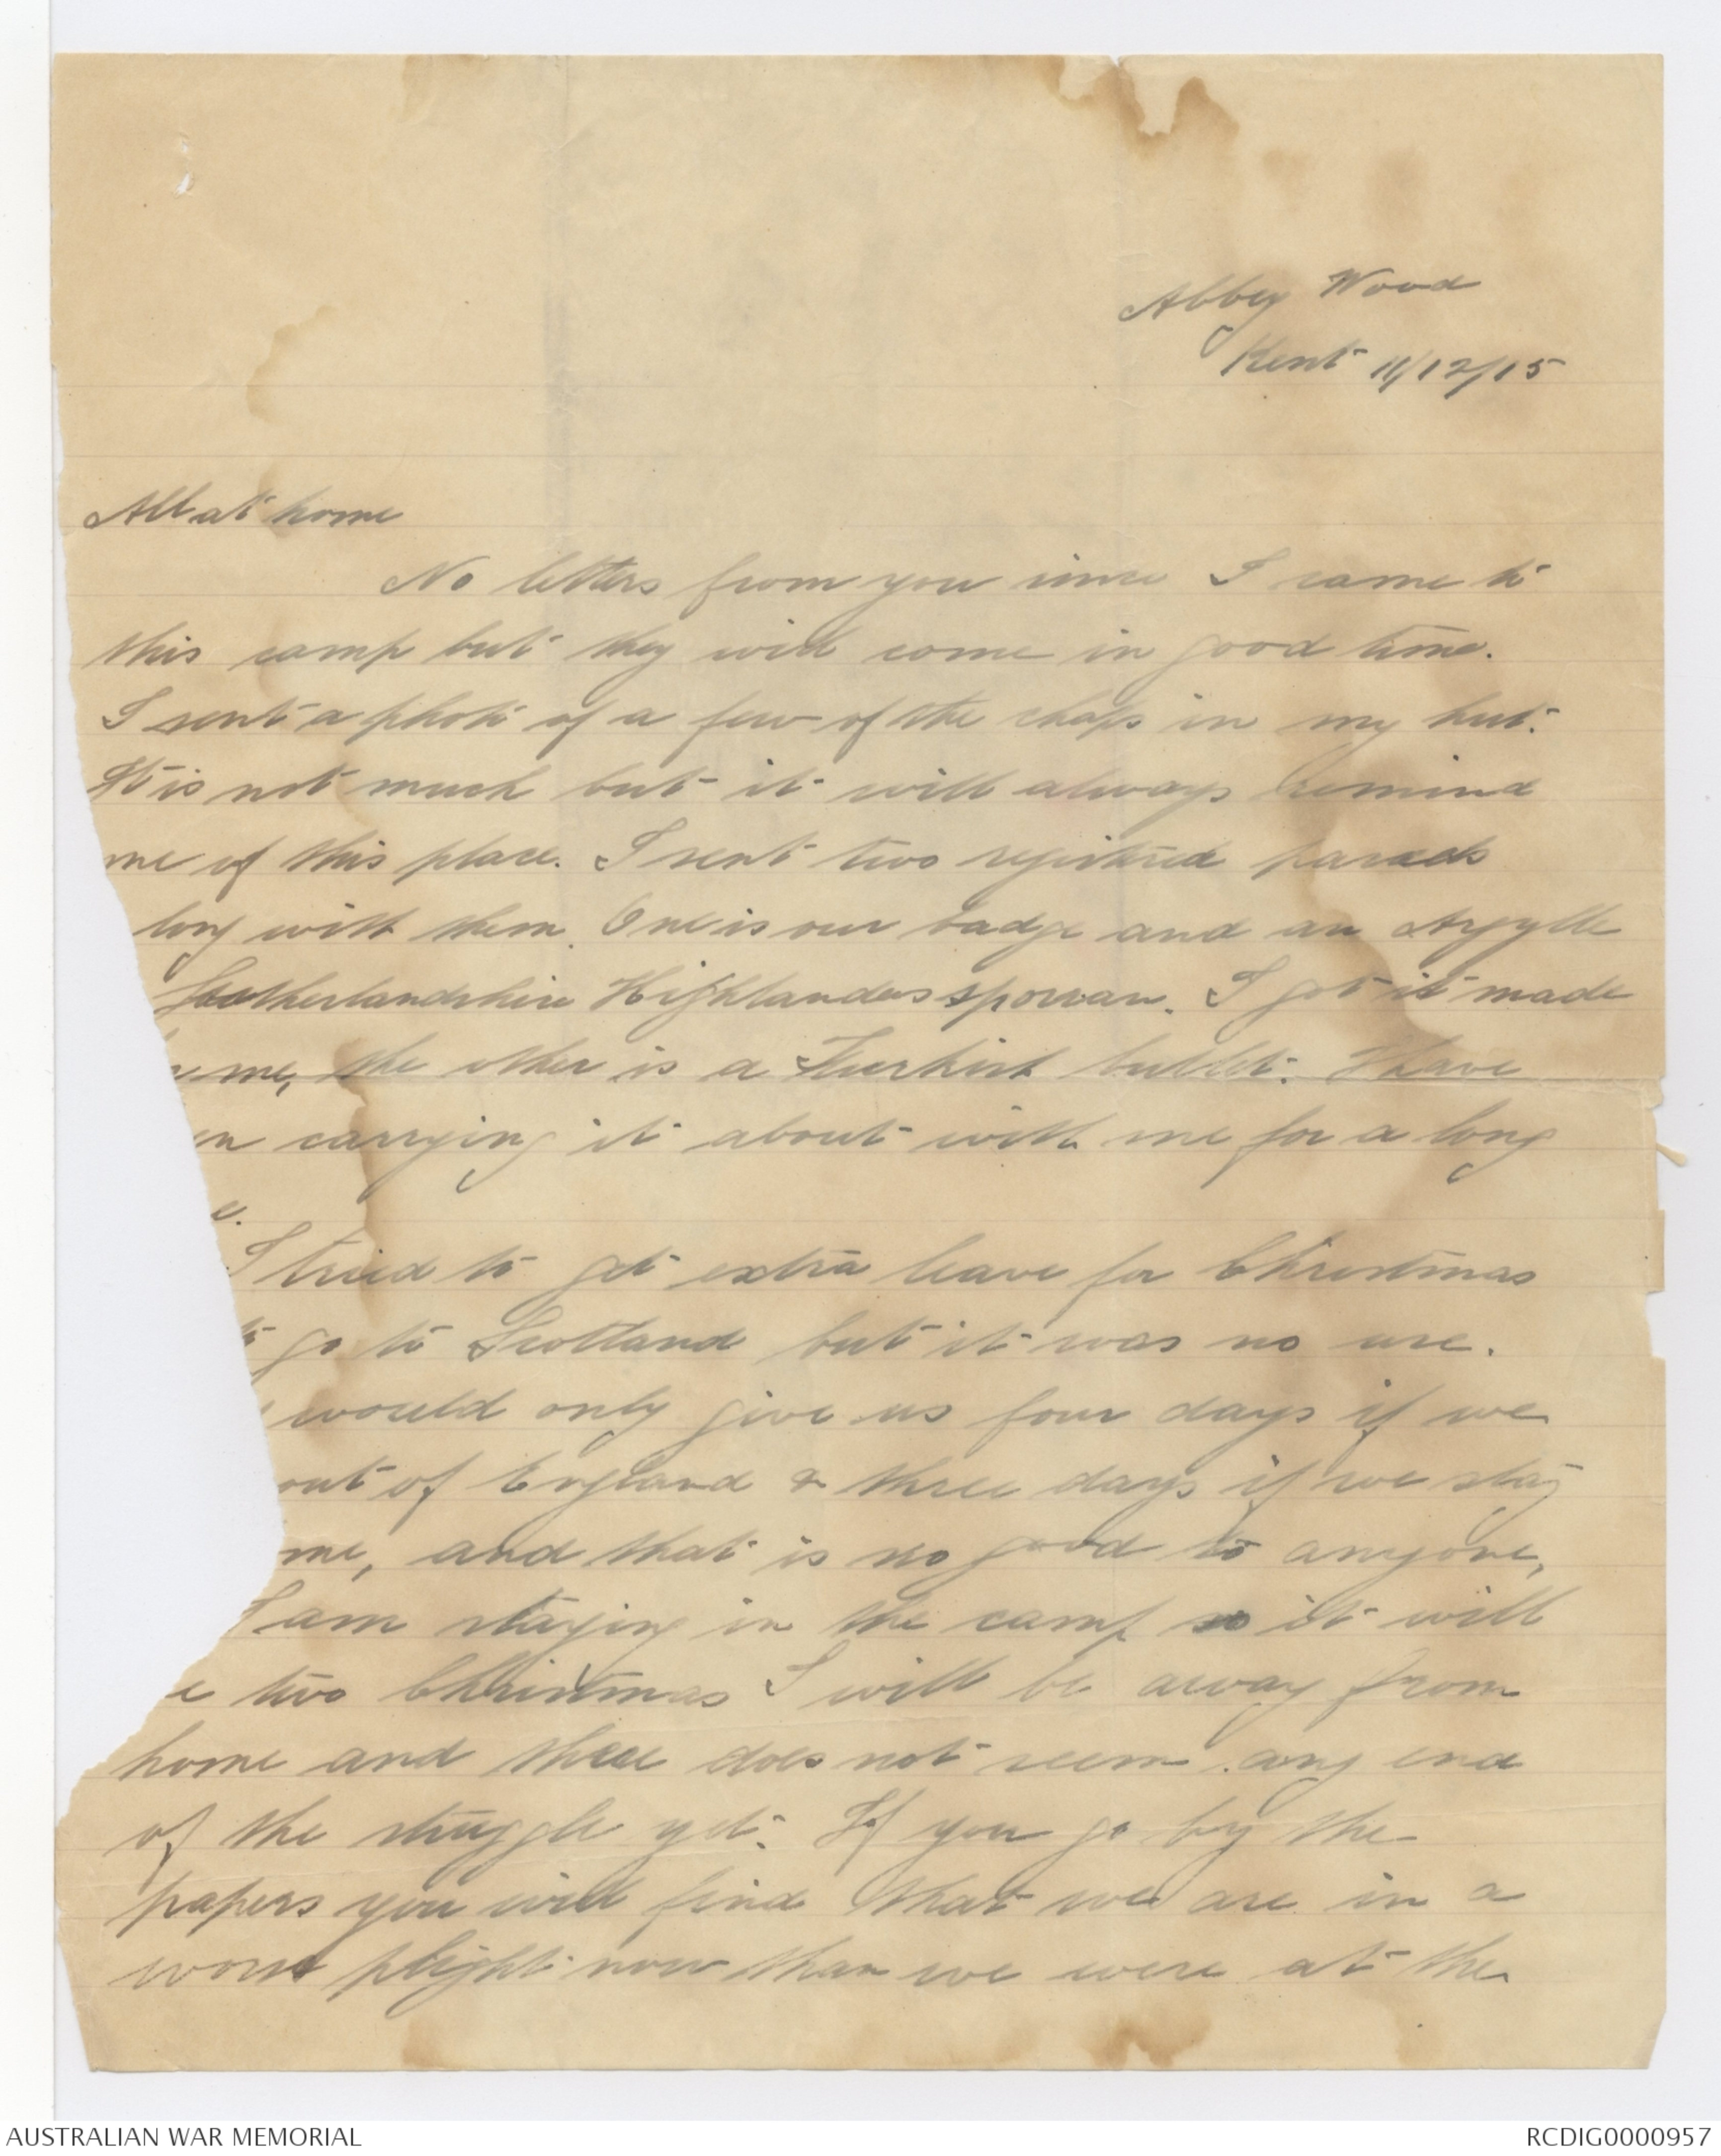 Abbey Wood
Kent 11/12/15
All at home
No letters from you since I came to
this camp but they will come in good time.
I sent a photo of a few of the chaps in my hut.
It is not much but it will always remind
me of this place. I sent two registered parcels
long with them. One is our badge and an Argylle
Sutherlandshire Highlanders sporran. I got it made
me, the other is a Turkish bullet. I have
n carrying it about with me for a long
e.
I tried to get extra leave for Christmas
to go to Scotland but it was no use.
would only give us four days if we
out of England & three days if we stay
me, and that is no good to anyone,
I am staying in the camp so it will
e two Christmas I will be away from
home and there does not seem any end
of the struggle yet. If you go by the
papers you will find that we are in a
worst plight now than we were at the
AUSTRALIAN WAR MEMORIAL
RCDIG0000957